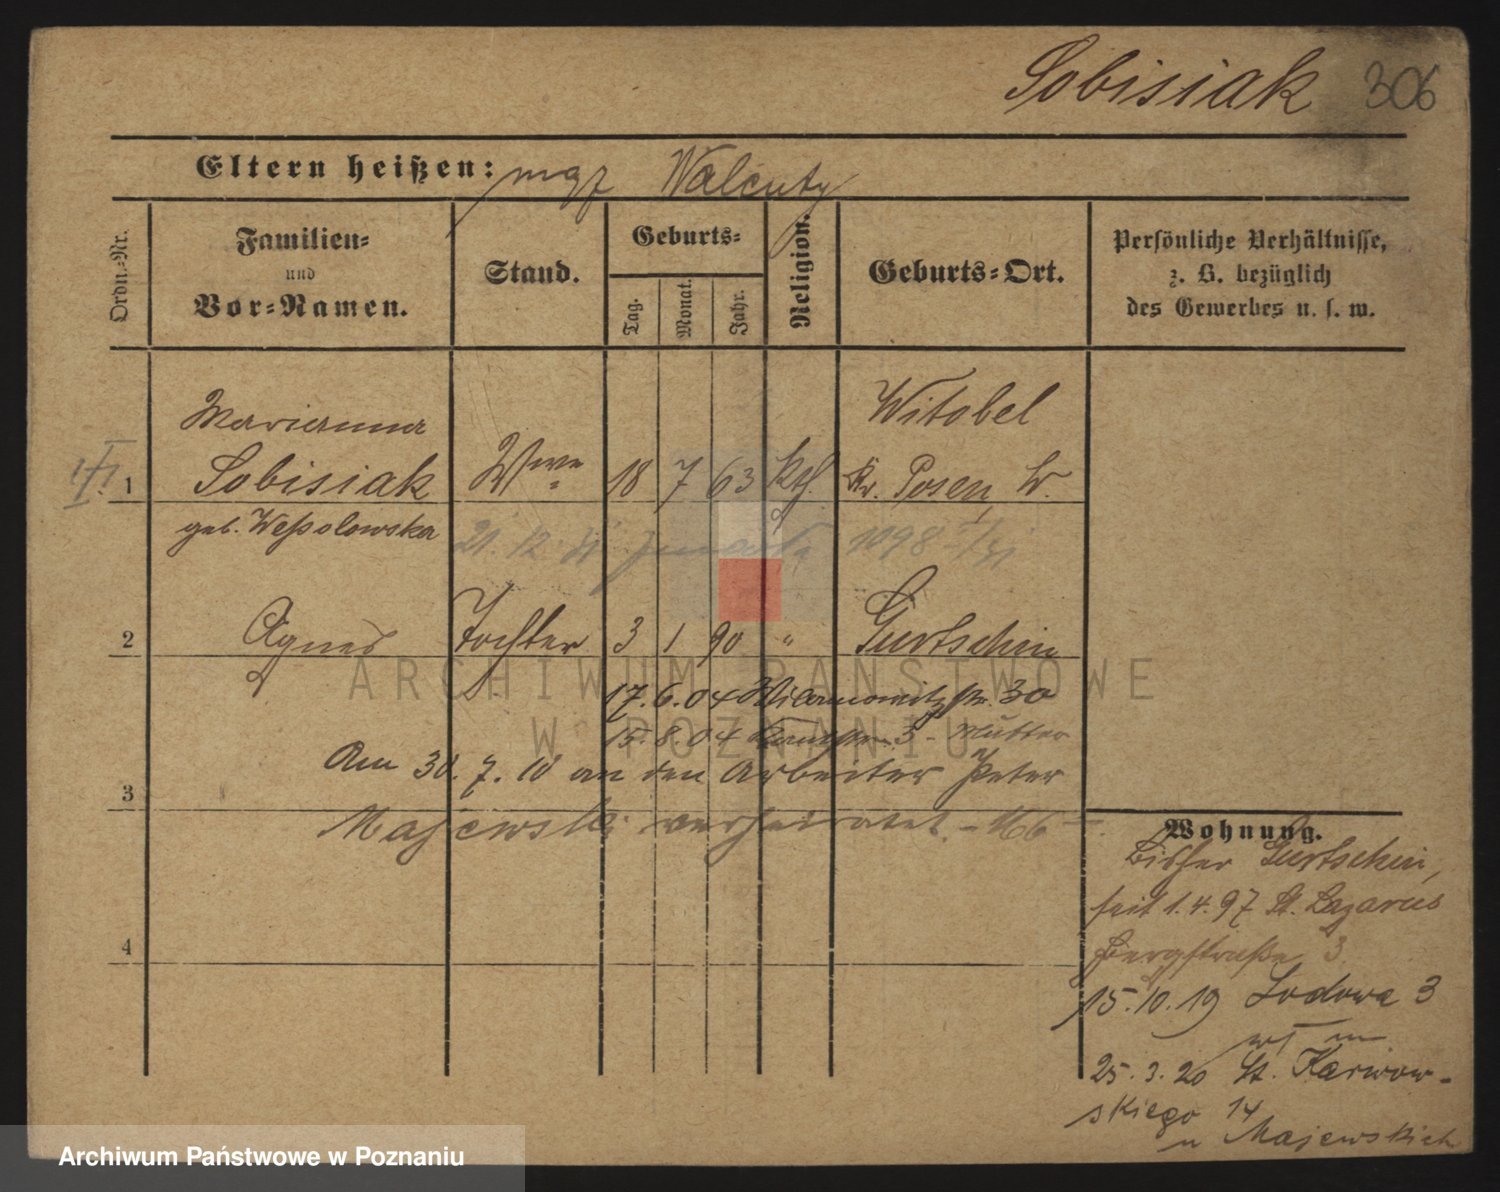 Sobisiak 306
Eltern heißen: mąż Walenty
Ordn.-Nr.
Familien-
und
Vor-Namen.
Stand.
Geburts-
Tag.
Monat.
Jahr.
Religion.
Geburts-Ort.
Persönliche Verhältnisse,
z. B. bezüglich
des Gewerbes u. s. w.
Marianna Witobel
1 Sobisiak Wwe 18 7 63 kth. Kr. Posen, W.
geb. Weßolowska
21.12.31 1098
2 Agnes Tochter 3 1 90 " Gurtschin
17.6.04 Wilamowitzstr. 30
15.8.04 3 - Mutter
Am 30.7.10 an den Arbeiter Peter
3
Majewski verheiratet - 166 -
Wohnung.
Bisher Gurtschin,
seit 1.4.97 St. Lazarus
Bergstraße 3.
4
15.10.19 Lodowa 3
25.3.20 St. Karwow-
skiego 14
u Majewskich
ARCHIWUM PAŃSTWOWE
W POZNANIU
Archiwum Państwowe w Poznaniu